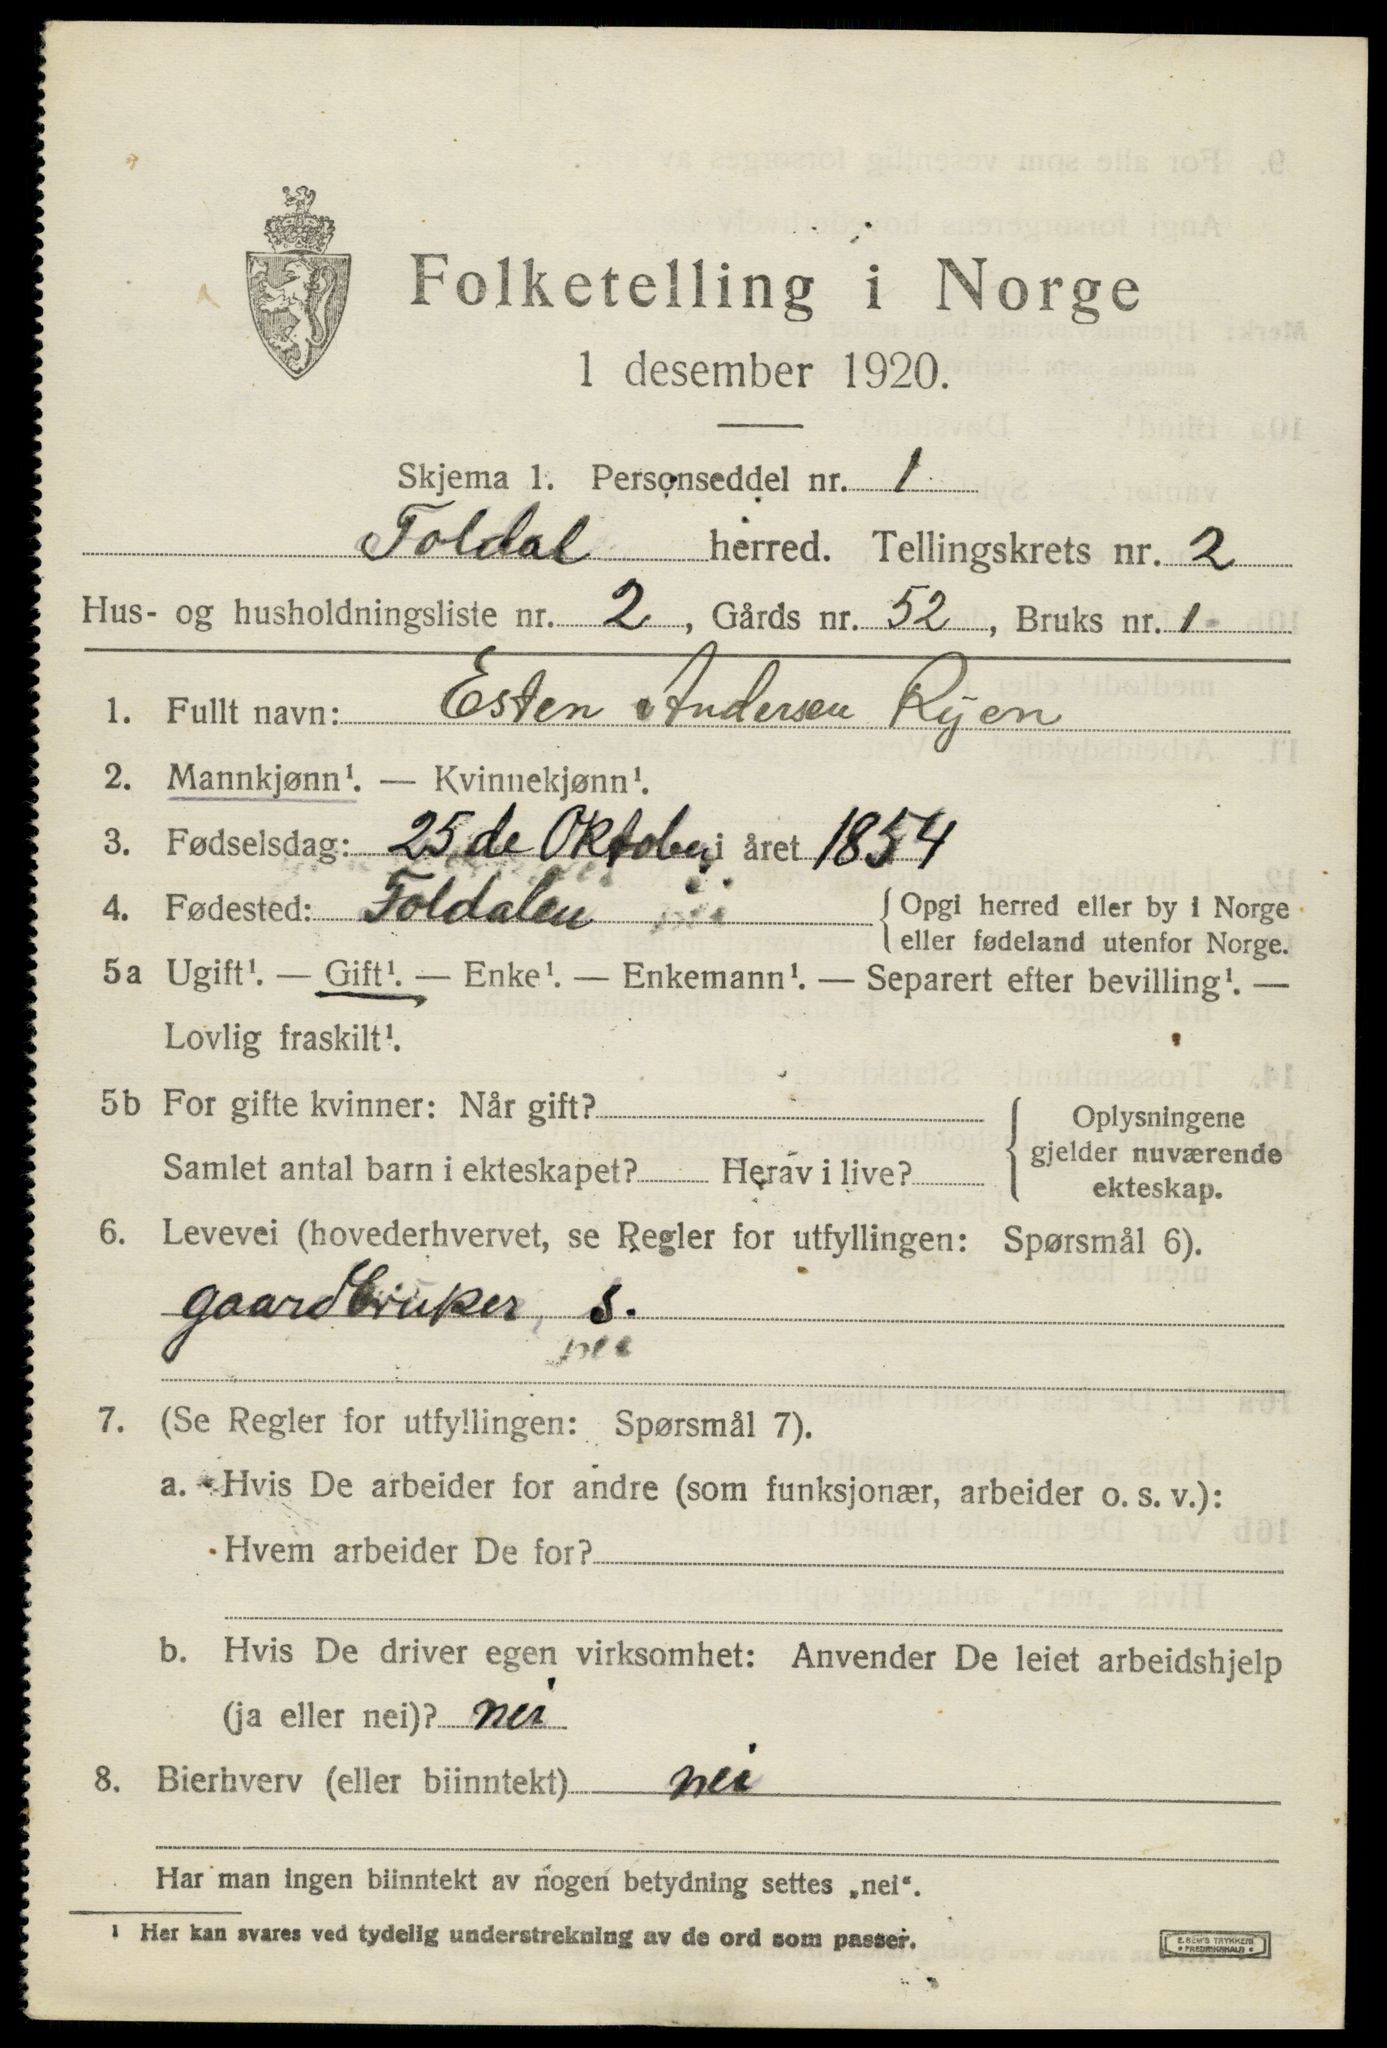 Folketelling i Norge
1 desember 1920.
Skjema 1. Personseddel nr. 1
Foldal herred. Tellingskrets nr. 2
Hus- og husholdningsliste nr. 2, Gårds nr. 52, Bruks nr. 1
1. Fullt navn: Esten Andersen Ryen
2. Mannkjønn¹. — Kvinnekjønn¹.
3. Fødselsdag: 25de Oktober i året 1854
4. Fødested: Foldalen { Opgi herred eller by i Norge
eller fødeland utenfor Norge.
5a Ugift¹. — Gift¹. — Enke¹. — Enkemann¹. — Separert efter bevilling¹. —
Lovlig fraskilt¹.
5b For gifte kvinner: Når gift? { Oplysningene
gjelder nuværende
Samlet antal barn i ekteskapet? Herav i live?
ekteskap.
6. Levevei (hovederhvervet, se Regler for utfyllingen: Spørsmål 6).
gaardbruker, s.
7. (Se Regler for utfyllingen: Spørsmål 7).
a. Hvis De arbeider for andre (som funksjonær, arbeider o. s. v.):
Hvem arbeider De for?
b. Hvis De driver egen virksomhet: Anvender De leiet arbeidshjelp
(ja eller nei)? nei
8. Bierhverv (eller biinntekt) nei
Har man ingen biinntekt av nogen betydning settes „nei“.
¹ Her kan svares ved tydelig understrekning av de ord som passer.
E. SEM'S TRYKKERI
FREDRIKSHALD